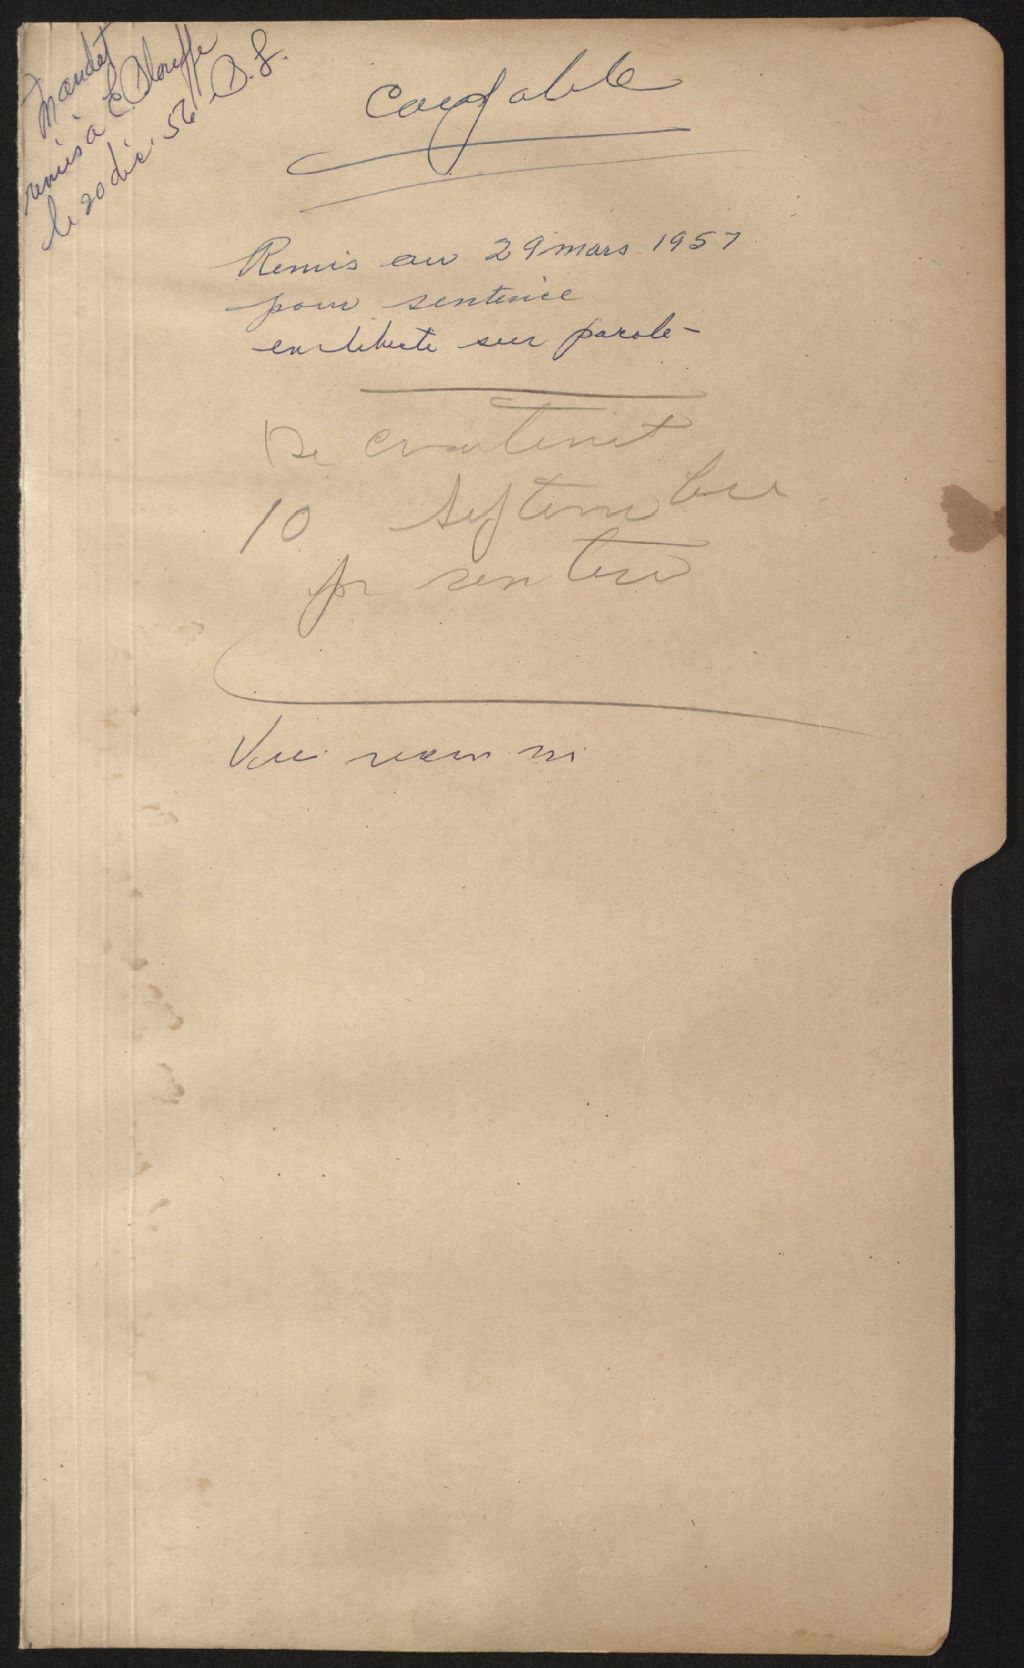 Mandat
remis à E. Plouffe
le 20 déc. 56
Coupable
Remis au 29 mars 1957
pour sentence
en liberté sur parole -
10 Septembre
pr sentence
Vu